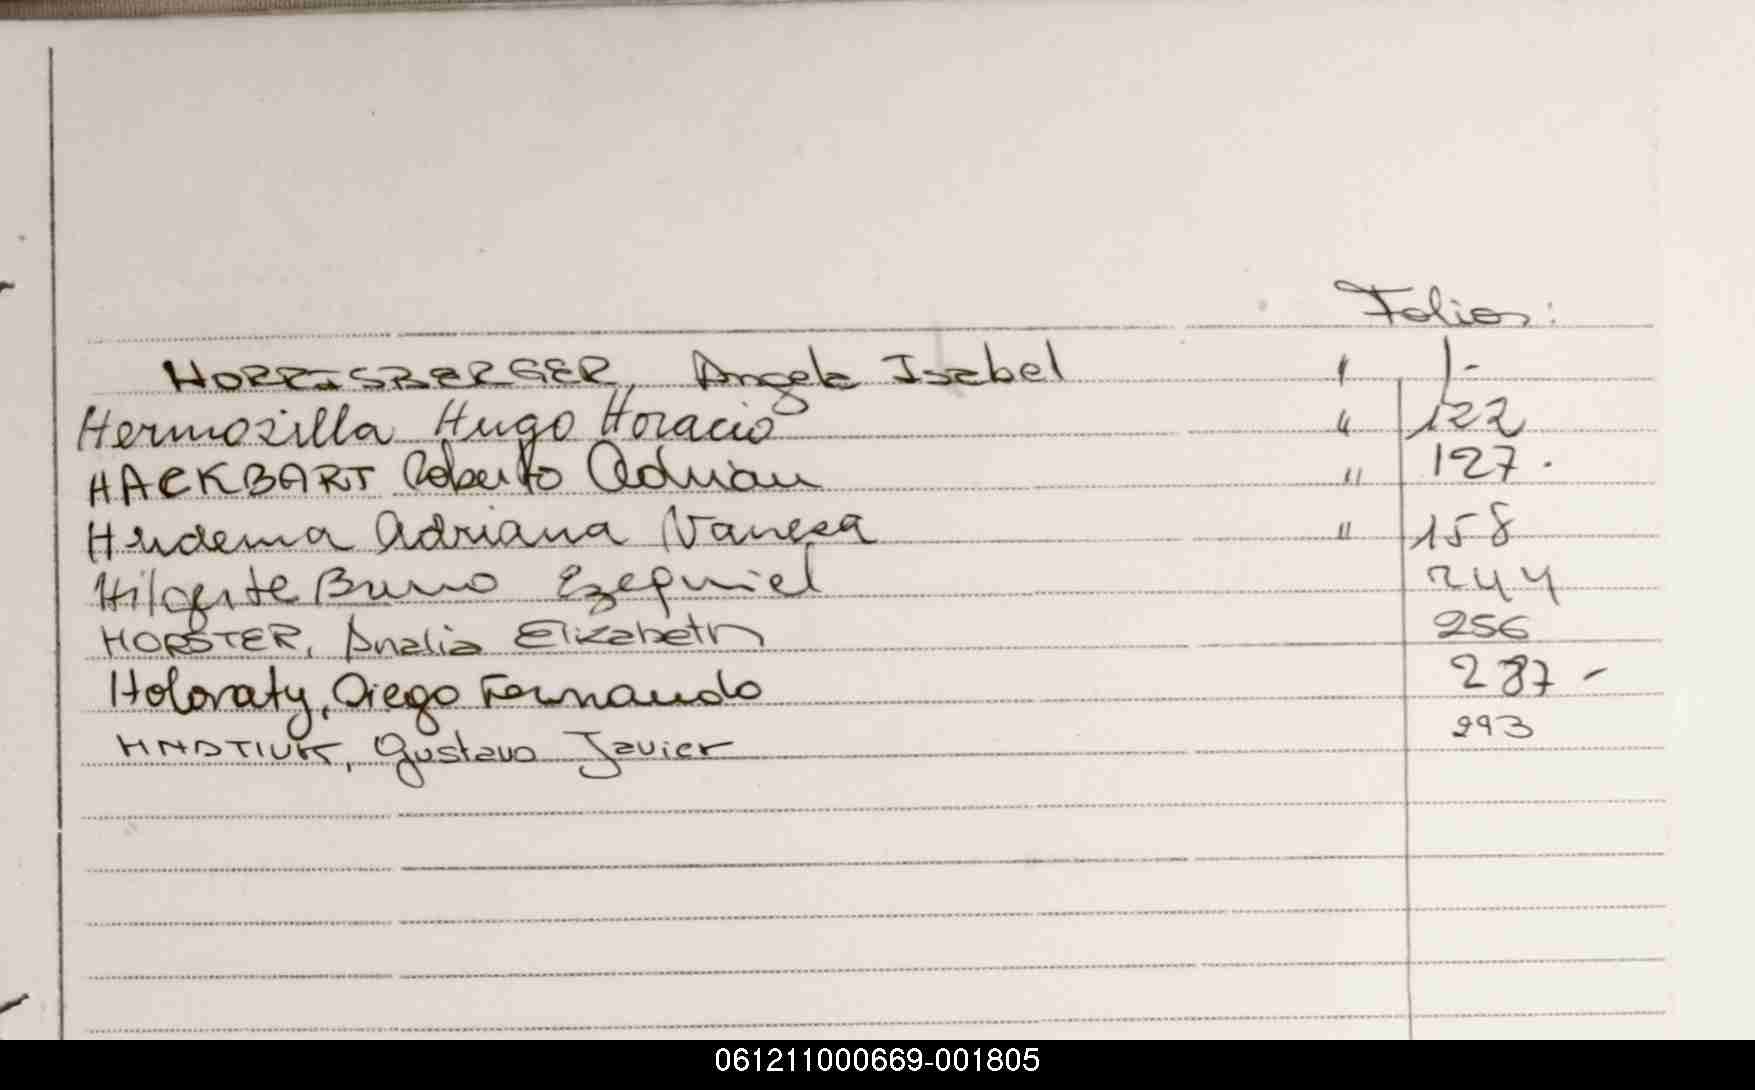 Folios:
HORRISBERGER, Angela Isabel " 1-
Hermosilla Hugo Horacio " 122
HACKBART Roberto Adrian " 127.
Adriana Vanesa " 158
Bruno Ezequiel 244
HORSTER, Analia Elizabeth 256
Holovaty, Diego Fernando 287-
HNATIUK, Gustavo Javier 293
061211000669-001805